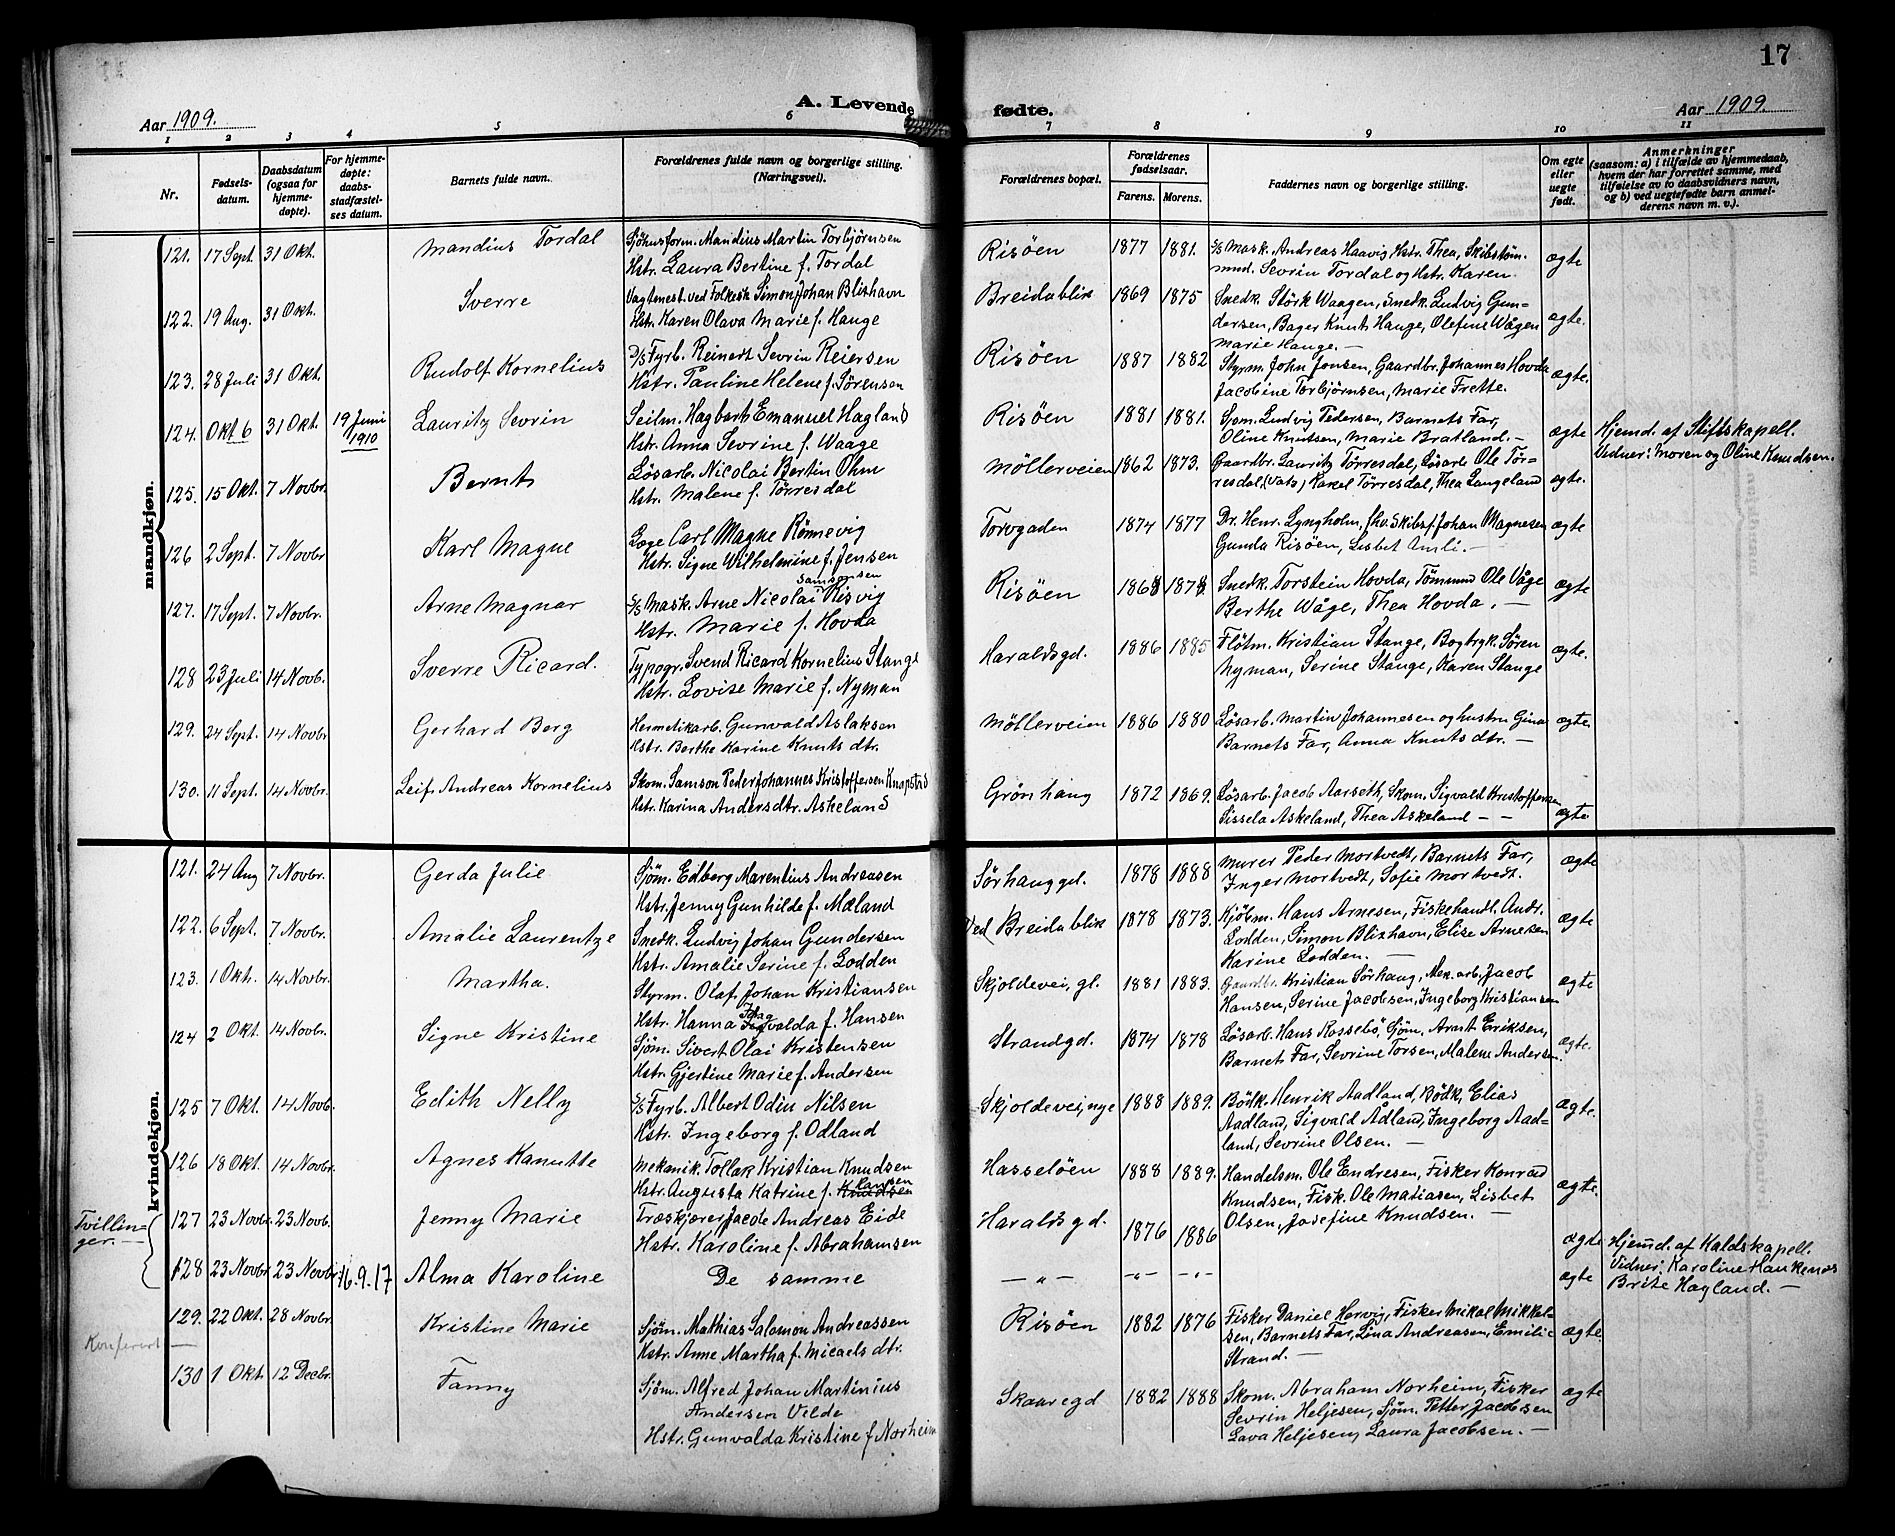 17
Aar 1909.
A. Levende fødte.
Aar 1909.
1 2 3 4 5 6 7 8 9 10 11
Nr.
Fødsels-
datum.
Daabsdatum
(ogsaa for
hjemme-
døpte).
For hjemme-
døpte:
daabs-
stadfæstel-
ses datum.
Barnets fulde navn.
Forældrenes fulde navn og borgerlige stilling.
(Næringsvei).
Forældrenes bopæl.
Forældrenes
fødselsaar.
Farens. Morens.
Faddernes navn og borgerlige stilling.
Om egte
eller
uegte
født.
Anmerkninger
(saasom: a) i tilfælde av hjemmedaab,
hvem der har forrettet samme, med
tilføielse av to daabsvidners navn,
og b) ved uegtefødte barn anmel-
derens navn m. v.).
mandkjøn.
121. 17 Sept. 31 Okt. Mandius Tordal
Sjöhusform. Mandius Martin Torbjörnsen
Hstr. Laura Bertine f. Tordal
Risöen 1877 1881.
D/S Mask. Andreas Haavig, Hstr. Thea, Skibstöm-
mmd. Sevrin Tordal og Hstr. Karen.
ægte
122. 19 Aug. 31 Okt. Sverre
Vagtmest. ved Folkesk Simon Johan Blixhavn
Hstr. Karen Olava Marie f. Hauge
Breidablik 1869 1875
Snedk. Störk Waagen, Snedk. Ludvig Gun-
dersen, Bager Knut Hauge, Olefine Wågen
Marie Hauge. —
ægte.
123. 28 Juli 31 Okt. Rudolf Kornelius
D/S Fyrb. Reinert Sevrin Reiersen
Hstr. Pauline Helene f. Sørensen
Risöen 1887 1882
Styrm John Jensen, Gaardbr. Johannes Hovda
Jacobine Torbjörnsen, Marie Frette.
ægte.
124. Okt 6 31 Okt. 19 Juni
1910
Lauritz Sevrin
Seilm. Hagbart Emanuel Hagland
Hstr. Anna Sevrine f. Waage
Risöen 1881 1881.
Sjøm. Ludvig Pedersen, Barnets Far,
Oline Knutsen, Marie Bratland. —
ægte
Hjemd. af Stiftskapell.
Vidner: Moren og Oline Knudsen.
125. 15 Okt. 7 Novbr. Bernt
Løsarb. Nicolai Bertin Ohm
Hstr. Malene f. Tørresdal
Möllerveien 1862 1873.
Gaardbr. Lauritz Tørresdal, Løsarb Ole Tør-
resdal, (Vats) Rakel Tørresdal, Thea Langeland
ægte.
126 2 Sept. 7 Novbr Karl Magne
Læge Carl Magne Rönnevig
Hstr. Signe Wilhelmine f. Jensen
Torvgaden 1874 1877
Dr. Henr. Lyngholm, fhv. Skibsf. Johan Magnesen
Gunda Risöen, Lisbet Amli. —
ægte
127. 17 Sept. 7 Novbr. Arne Magnar
Samsonsen
D/S Mask. Arne Nicolai Risvig
Hstr. Marie f. Hovda
Risöen 1868 1878.
Snedk. Torstein Hovda, Tömmmd Ole Våge
Berthe Wåge, Thea Hovda. —
ægte
128 23 Juli 14 Novb. Sverre Ricard.
Typogr. Svend Ricard Kornelius Stange
Hstr. Lovise Marie f. Nyman
Haraldsgd. 1886 1885
Flötm. Kristian Stange, Bogtryk. Sören
Nyman, Serine Stange, Karen Stange
ægte.
129. 24 Sept. 14 Novbr Gerhard Berg
Hermetikarb. Gunvald Aslaksen
Hstr. Berthe Karine Knutsdtr.
Möllerveien 1886 1880
Løsarb. Martin Johannesen og hustru Gina
Barnets Far, Anna Knutsdtr. —
ægte.
130. 11 Sept. 14 Novbr. Leif Andreas Kornelius
Skom. Samson Peder Johannes Kristoffersen Knapstad
Hstr. Marina Andersdtr. Askeland
Grönhaug 1872 1869.
Løsarb. Jacob Aarseth, Skom. Sigvald Kristoffersen
Sissela Askeland, Thea Askeland — —
ægte
kvindekjøn.
121. 24 Aug 7 Novbr. Gerda Julie
Sjöm. Edberg Marentius Andreasen
Hstr. Jenny Gunhilde f. Mæland
Sörhauggd. 1878 1888
Murer Peder Mortvedt, Barnets Far,
Inger Mortvedt, Sofie Mortvedt.
ægte
122. 6 Sept. 7 Novbr. Amalie Laurentze
Snedk. Ludvig Johan Gundersen
Hstr. Amalie Serine f. Lodden
Ved Breidablik 1878 1873.
Kjöbm. Hans Arnesen, Fiskehandl. Andr.
Lodden, Simon Blixhavn, Elise Arnesen
Karine Lodden. —
ægte
123. 1 Okt. 14 Novbr. Martha.
Styrm. Olaf Johan Kristiansen
Hstr. Hanna Ingvalda f. Hansen
Skjoldevei, gl. 1881 1883.
Gaardbr. Kristian Sörhaug, Mek. arb. Jacob
Hansen, Serine Jacobsen, Ingeborg Kristiansen
ægte
124 2 Okt. 14 Novbr. Signe Kristine
Sjöm. Sivert Olai Kristensen
Hstr. Gjertine Marie f. Andersen
Strandgd. 1874 1878
Løsarb. Hans Rossebö, Sjöm. Arnt Eriksen,
Barnets Far, Sevrine Torsen, Malene Andersen.
ægte.
125 7 Okt. 14 Novb. Edith Nelly
D/S Fyrb. Albert Odin Nilsen
Hstr. Ingeborg f. Odland
Skjoldevei, nye 1888 1889.
Bödk. Henrik Aadland, Bödk. Elias
Aadland, Sigvald Ådland, Ingeborg Aad-
land, Sevrine Olsen. —
ægte.
126 18 Okt. 14 Novbr. Agnes Kanutte
Mekanik. Tollak Kristian Knudsen
Hstr. Augusta Katrine f. Knudsen
Hasselöen 1888 1889.
Handelsm. Ole Endresen, Fisker Konrad
Knudsen, Fisk. Ole Matiasen, Lisbet
Olsen, Josefine Knudsen. —
ægte.
Tvillin-
ger. —
127 23 Novbr. 23 Novb. Jenny Marie
Træskjærer Jacob Andreas Eide
Hstr. Karoline f. Abrahamsen
Haraldsgd. 1876 1886
ægte
Hjemd. af Kaldskapell.
Vidner: Karoline Haukenes
Brite Hagland. —
128 23 Novbr 23 Novbr 16.9.17 Alma Karoline
De samme
— „ — — „ — — „ —
ægte
129. 22 Okt. 28 Novbr. Kristine Marie
Sjöm. Mathias Salomon Andreassen
Hstr. Anne Martha f. Micaelsdtr.
Risöen 1882 1876
Fisker Daniel Hervig, Fisker Mikal Mikkel-
sen, Barnets Far, Lina Andreasen, Emilie
Strand. —
ægte
Konferert —
130 1 Okt. 12 Decbr. Fanny
Sjöm. Alfred Johan Martinius
Andersen Velde
Hstr. Gunvalda Kristine f Norheim
Skaaregd 1882 1888
Skom. Abraham Norheim, Fisker
Sevrin Heljesen, Sjöm. Petter Jacobsen
Lava Heljesen, Laura Jacobsen. —
ægte